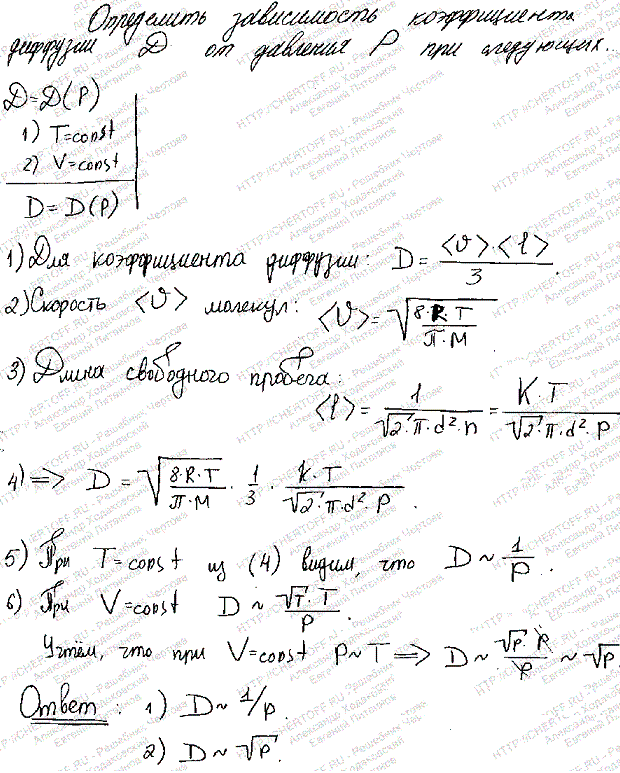 Определить зависимость коэффициента
диффузии D от давления P при следующих...
D=D(P)
1) T=const
2) V=const
D = D(P)
1) Для коэффициента диффузии: D = <υ>·<l> / 3.
2) Скорость <υ> молекул: <υ> = √(8·R·T / π·M)
3) Длина свободного пробега:
<l> = 1 / (√2·π·d²·n) = K·T / (√2·π·d²·P)
4) => D = √(8·R·T / π·M) · 1/3 · K·T / (√2·π·d²·P).
5) При T=const из (4) видим, что D ~ 1/P.
6) При V=const D ~ √T·T / P.
Учтём, что при V=const P~T => D ~ √P·P / P ~ √P.
Ответ: 1) D ~ 1/P.
2) D ~ √P.
HTTP://CHERTOFF.RU - Решебник Чертова
Александр Ходаковский
Евгений Литвинов